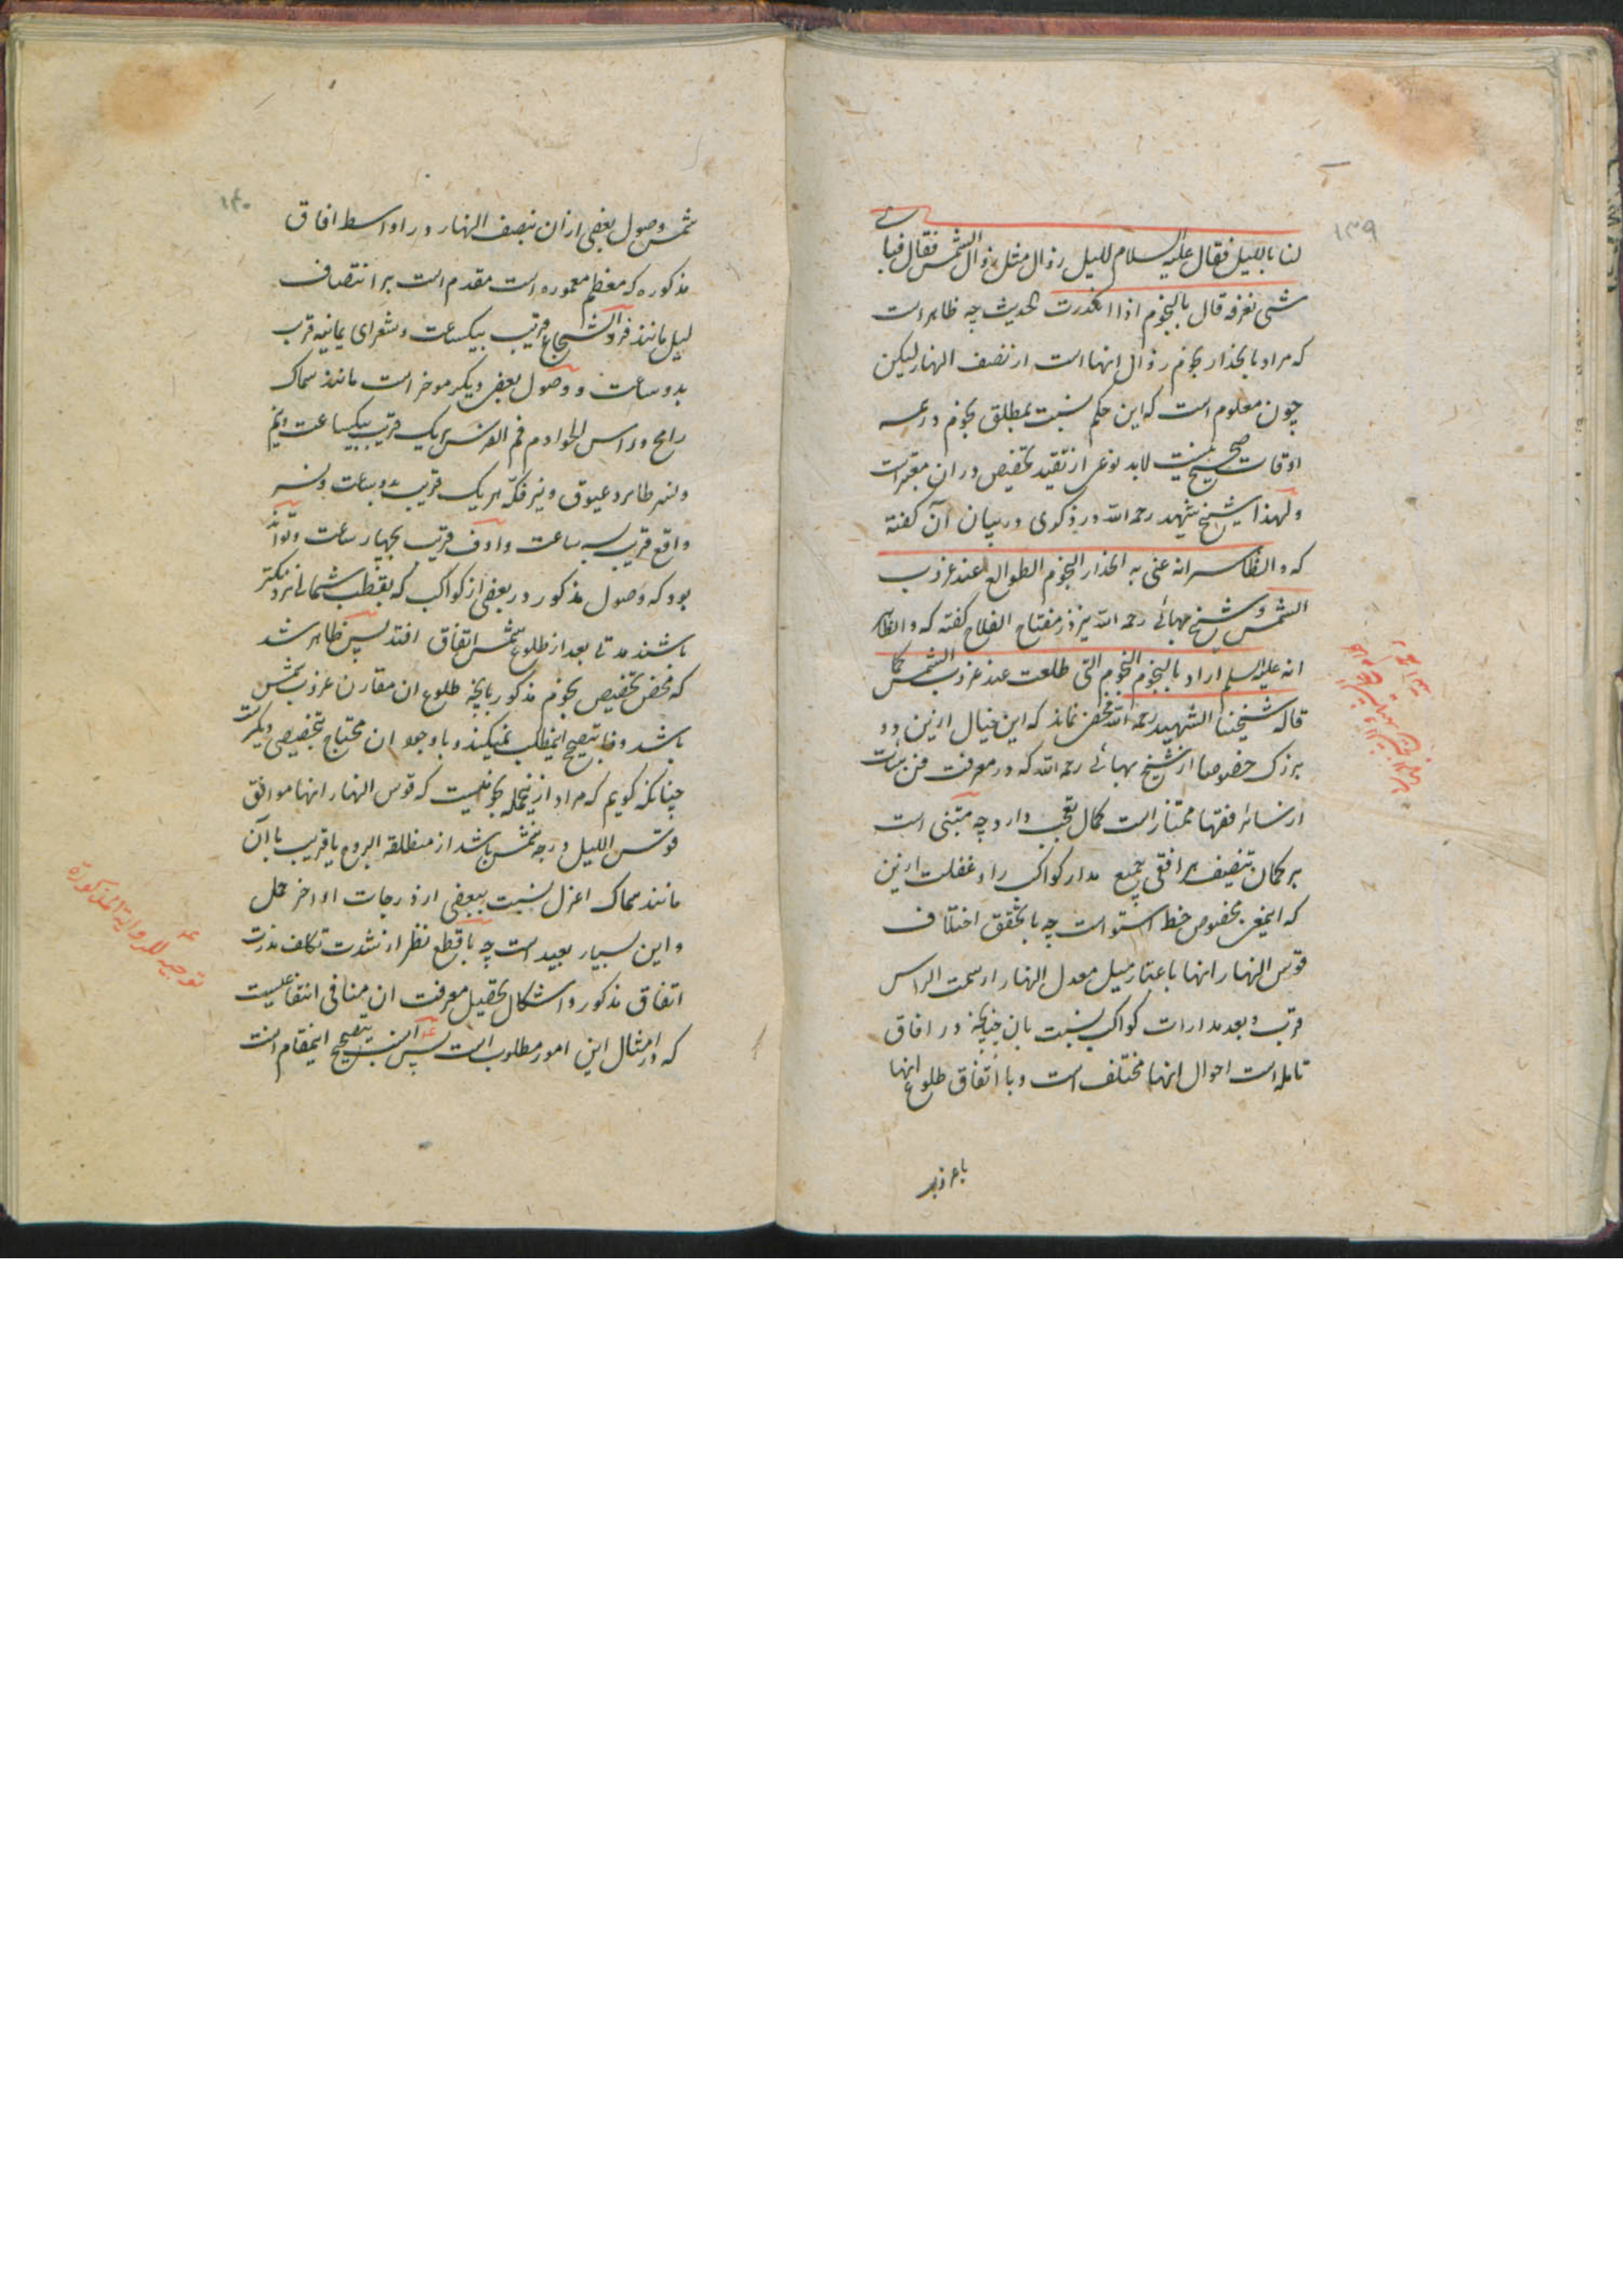 ۱۳۹
لنا باللیل فقال علیه السلام للیل زوال مثل زوال الشمس فقال فبای
شی نعرفه قال بالنجوم اذا انحدرت الحدیث چه ظاهر است
که مراد بانحدار نجوم زوال انها است از نصف النهار لیکن
چون معلوم است که این حکم نسبت بمطلق نجوم در همه
اوقات صحیح نیست لابد نوعی از تقید و تخصیص در ان معتبر است
و لهذا شیخ شهید رحمه الله در ذکری در بیان آن گفته
که و الظاهر انه عنی به انحدار النجوم الطوالع عند غروب
الشمس و شیخ بهائی رحمه الله نیز در مفتاح الفلاح گفته که و الظاهر
انه علیه السلم اراد بالنجوم النجوم التی طلعت عند غروب الشمس کما
قاله شیخنا الشهید رحمه الله مخفی نماند که این خیال ازین دو
بزرک خصوصا از شیخ بهائی رحمه الله که در معرفت فن هیئات
از سائر فقها ممتاز است کمال تعجب دارد چه مبتنی است
بر کمان تنصیف هر افقی جمیع مدار کواکب را و غفلت ازین
که اینمعنی مخصوص خط استوا است چه با تحقق اختلاف
قوس النهار انها باعتبار میل معدل النهار از سمت الراس
و قرب و بعد مدارات کواکب نسبت بان چنانچه در افاق
مائله است احوال انها مختلف است و با اتفاق طلوع انها
با غروب
۱۴۰
شمس وصول بعضی از ان بنصف النهار در اواسط افاق
مذکوره که معظم معموره است مقدم است بر انتصاف
لیل مانند فرد الشجاع قریب بیکساعت و شعرای یمانیه قریب
بدو ساعت و وصول بعضی دیکر موخر است مانند سماک
رامح و راس الحوا و فم الفرس هر یک قریب بیکساعت و نیم
و نسر طایر و عیوق و نیر فکه هر یک قریب بدو ساعت و نسر
واقع قریب بسه ساعت و ردف قریب بچهار ساعت و تواند
بود که وصول مذکور در بعضی از کواکب که بقطب شمالی نزدیکتر
باشند مدتی بعد از طلوع شمس اتفاق افتد پس ظاهر شد
که محض تخصیص نجوم مذکور بانچه طلوع ان مقارن غروب شمس
باشد وفا بتصحیح اینمطلب نمیکند و با وجود ان محتاج بتخصیصی دیکر است
چنانکه کویم که مراد از اینجمله نجومیست که قوس النهار انها موافق
قوس اللیل درجه شمس باشد از منطقة البروج یا قریب بآن
مانند سماک اعزل نسبت ببعضی از درجات اواخر حمل
و این بسیار بعید است چه با قطع نظر از شدت تکلف ندرت
اتفاق مذکور و اشکال تحصیل معرفت ان منافی انتفاعیست
که در امثال این امور مطلوب است پس انسب بتصحیح اینمقام انست
توجیه للروایة المذکورة